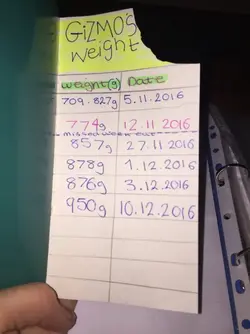 GiZMO's
weight
weight(g) Date
709.827g 5.11.2016
774g 12.11 2016
missed week out
857g 27.11 2016
878g 1.12.2016
876g 3.12.2016
950g 10.12.2016